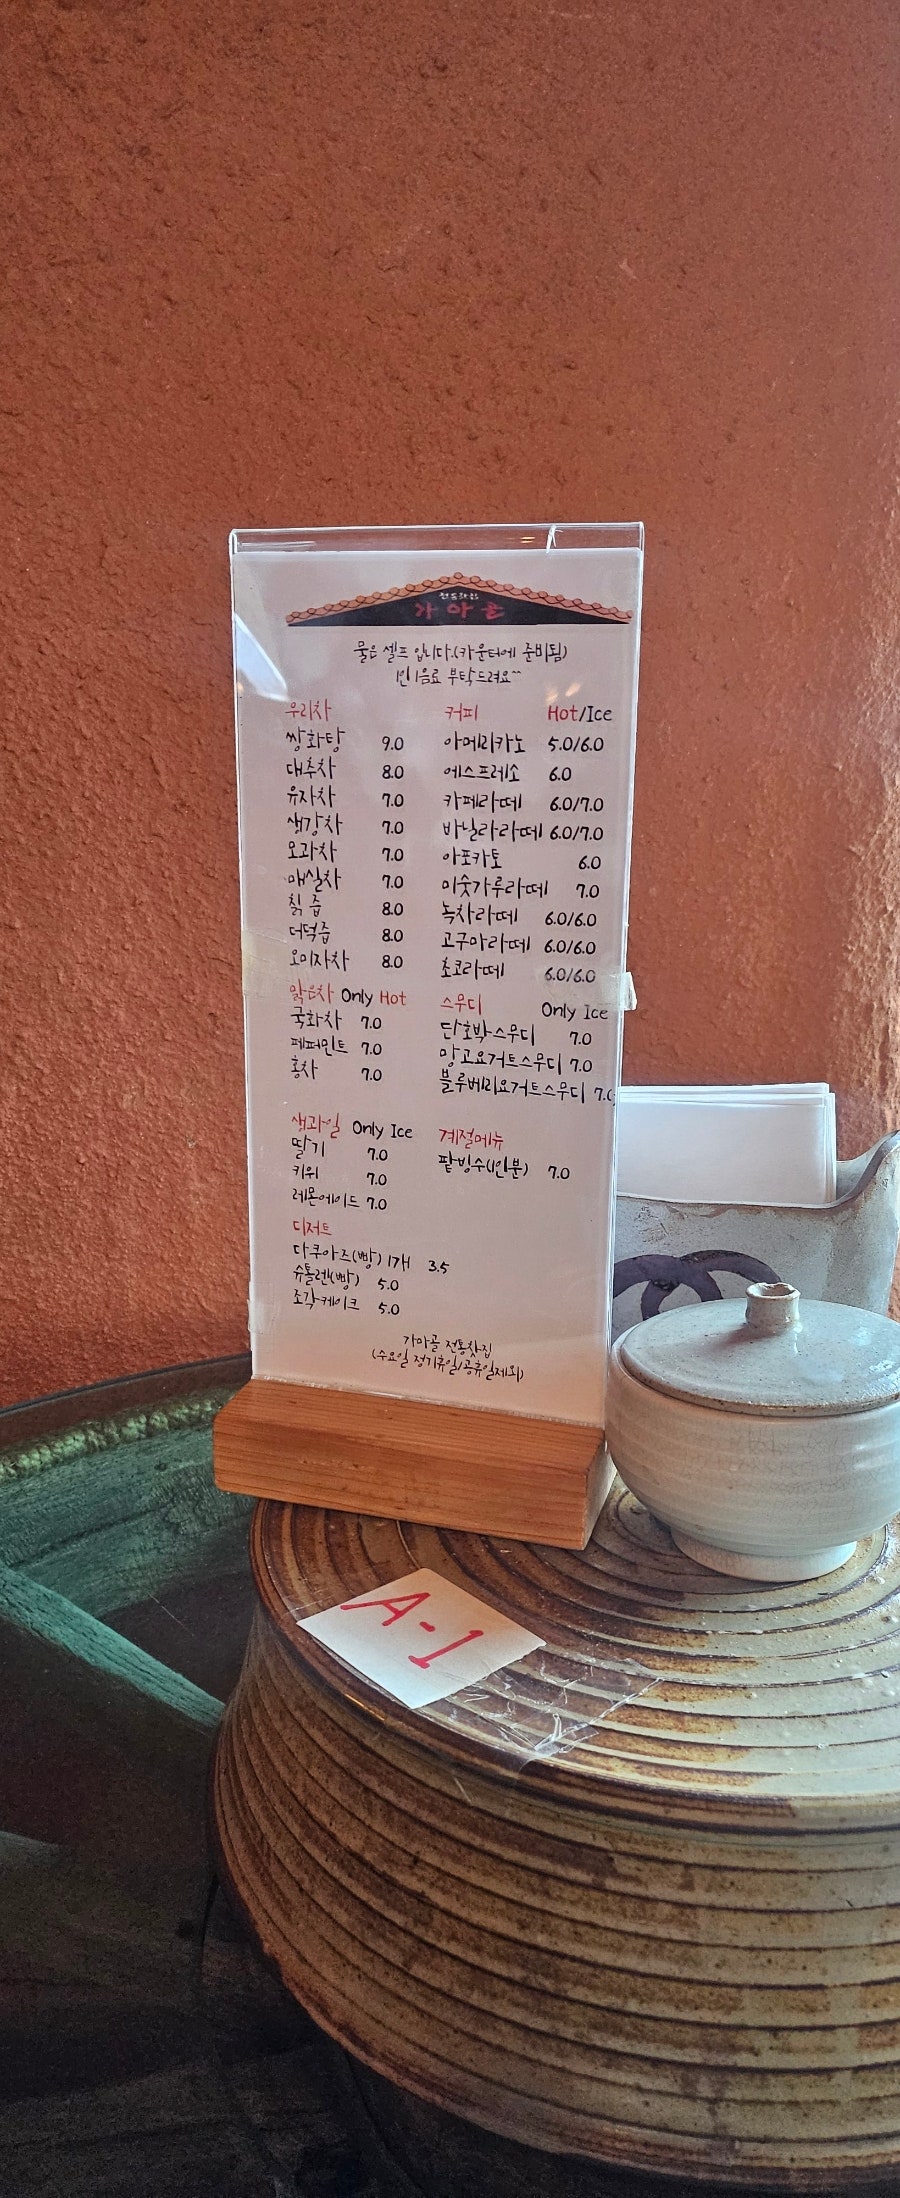 전통찻집
가마골
물은 셀프 입니다.(카운터에 준비됨)
1인 1음료 부탁드려요^^
우리차
쌍화탕 9.0
대추차 8.0
유자차 7.0
생강차 7.0
모과차 7.0
매실차 7.0
칡즙 8.0
더덕즙 8.0
오미자차 8.0
맑은차 Only Hot
국화차 7.0
페퍼민트 7.0
홍차 7.0
생과일 Only Ice
딸기 7.0
키위 7.0
레몬에이드 7.0
디저트
다쿠아즈(빵) 1개 3.5
슈톨렌(빵) 5.0
조각케이크 5.0
커피 Hot/Ice
아메리카노 5.0/6.0
에스프레소 6.0
카페라떼 6.0/7.0
바닐라라떼 6.0/7.0
아포카토 6.0
미숫가루라떼 7.0
녹차라떼 6.0/6.0
고구마라떼 6.0/6.0
초코라떼 6.0/6.0
스무디 Only Ice
단호박스무디 7.0
망고요거트스무디 7.0
블루베리요거트스무디 7.0
계절메뉴
팥빙수(1인분) 7.0
가마골 전통찻집
(수요일 정기휴일/공휴일제외)
A-1